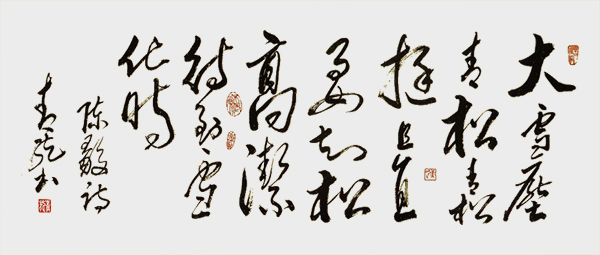 大雪壓
青松青松
挺且直
要知松
高潔
待到雪
化時
陈毅诗
书